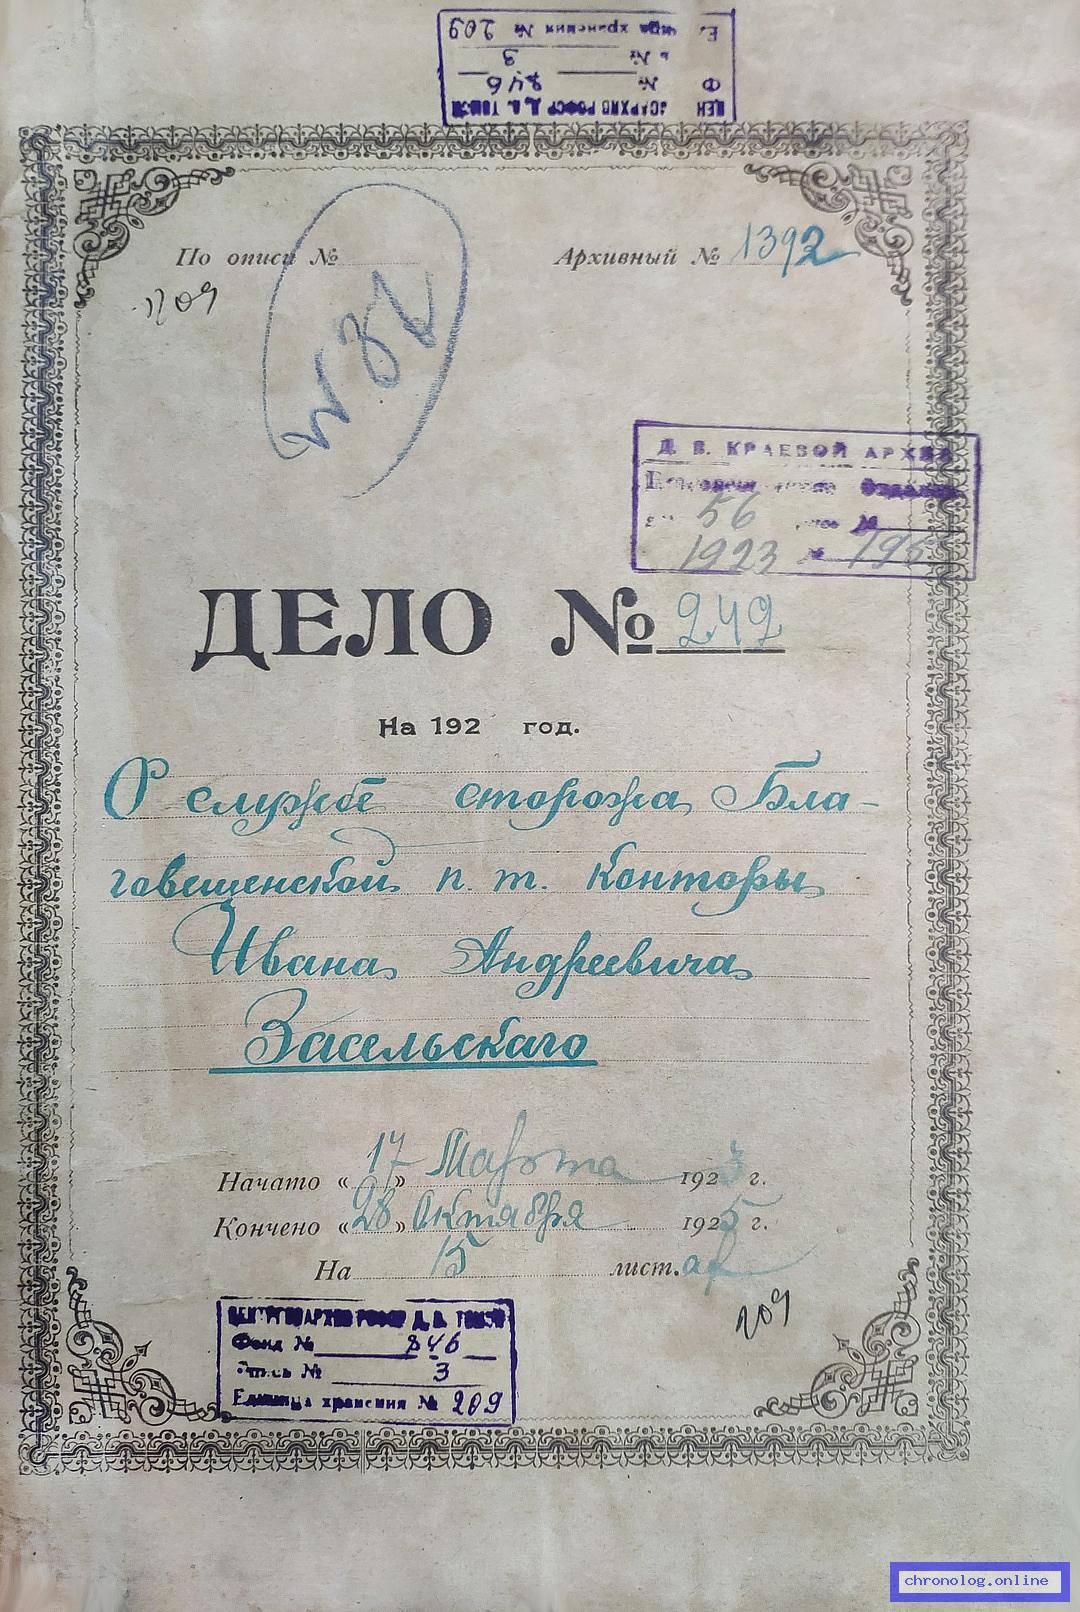 ЦЕН ОСАРХИВ РСФСР Д. В. ТОМСК
Ф № 846
№ 3
Е. хранения № 209
По описи № Архивный № 1392
209
№ 82
Д. В. КРАЕВОЙ АРХИВ
Отделен
56 №
1923 № 195
ДЕЛО № 242
На 192 год.
О службе сторожа Бла-
говещенской п. т. Конторы
Ивана Андреевича
Засельскаго
Начато « 17 » Марта 1923 г.
Кончено « 28 » Октября 1925 г.
На 15 лист.ах
209
ЦЕНТРГОСАРХИВ РСФСР Д. В. ТОМСК
Фонд № 846
Опись № 3
Единица хранения № 209
chronolog.online